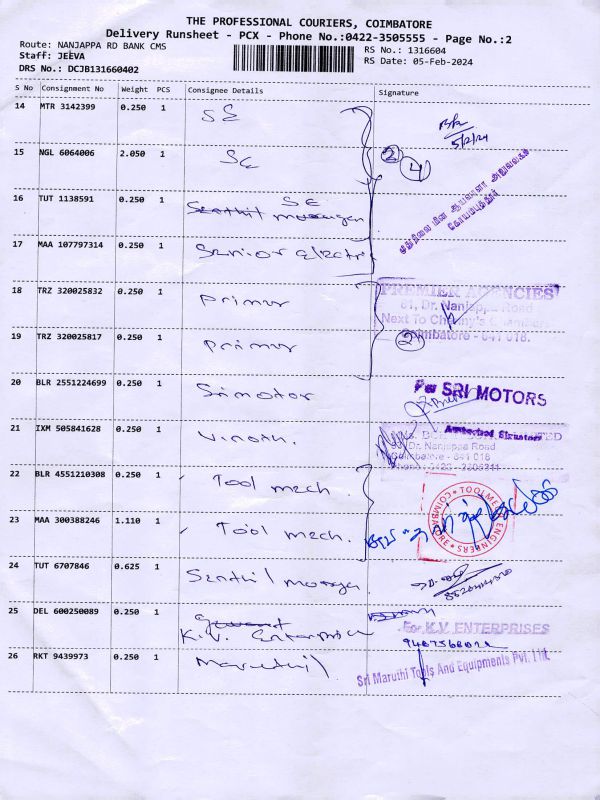 THE PROFESSIONAL COURIERS, COIMBATORE
Delivery Runsheet - PCX - Phone No.:0422-3505555 - Page No.:2
Route: NANJAPPA RD BANK CMS
RS No.: 1316604
Staff: JEEVA
RS Date: 05-Feb-2024
DRS No.: DCJB131660402
S No Consignment No Weight PCS Consignee Details Signature
14 MTR 3142399 0.250 1 SE
5/2/24
15 NGL 6064006 2.050 1 SE 2 4
16 TUT 1138591 0.250 1 SE
Senthil murugan
17 MAA 107797314 0.250 1 Senior electric
18 TRZ 320025832 0.250 1 primer
PREMIER AGENCIES
61, Dr. Nanjappa Road
Next To Channy's
Coimbatore - 641 018.
19 TRZ 320025817 0.250 1 primer 2
20 BLR 2551224699 0.250 1 Srimotor
Per SRI MOTORS
Authorised Signatory
21 IXM 505841628 0.250 1 Vinoth.
Dr. Nanjappa Road
Coimbatore - 641 018
22 BLR 4551210308 0.250 1 Tool mech.
TOOLMECH ENGINEERS
COIMBATORE
23 MAA 300388246 1.110 1 Tool mech.
24 TUT 6707846 0.625 1 Senthil muruga
25 DEL 600250089 0.250 1
K.V. Enterprice
For K.V. ENTERPRISES
26 RKT 9439973 0.250 1 Maruthi
Sri Maruthi Tools And Equipments Pvt. Ltd.